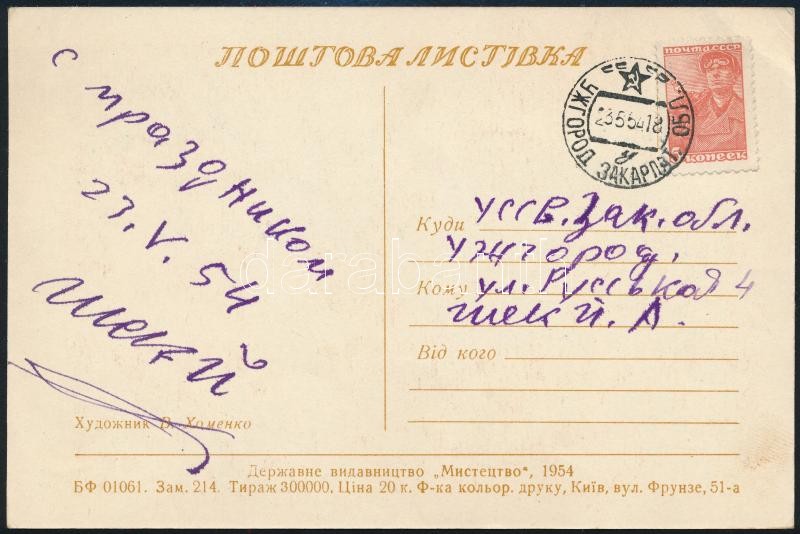 ПОШТОВА ЛИСТІВКА
с праздником
23.V.54
Шекй
Художник В. Хоменко
ПОЧТА СССР
5 КОПЕЕК
УЖГОРОД ЗАКАРПАТ. ОБЛ.
23 5 54 18
У
Куди УССР. Зак. обл.
Ужгород.
Кому ул. Русськой 4
Шекй. А.
Від кого
darabanth
Державне видавництво „Мистецтво“, 1954
БФ 01061. Зам. 214. Тираж 300000. Ціна 20 к. Ф-ка кольор. друку, Київ, вул. Фрунзе, 51-а